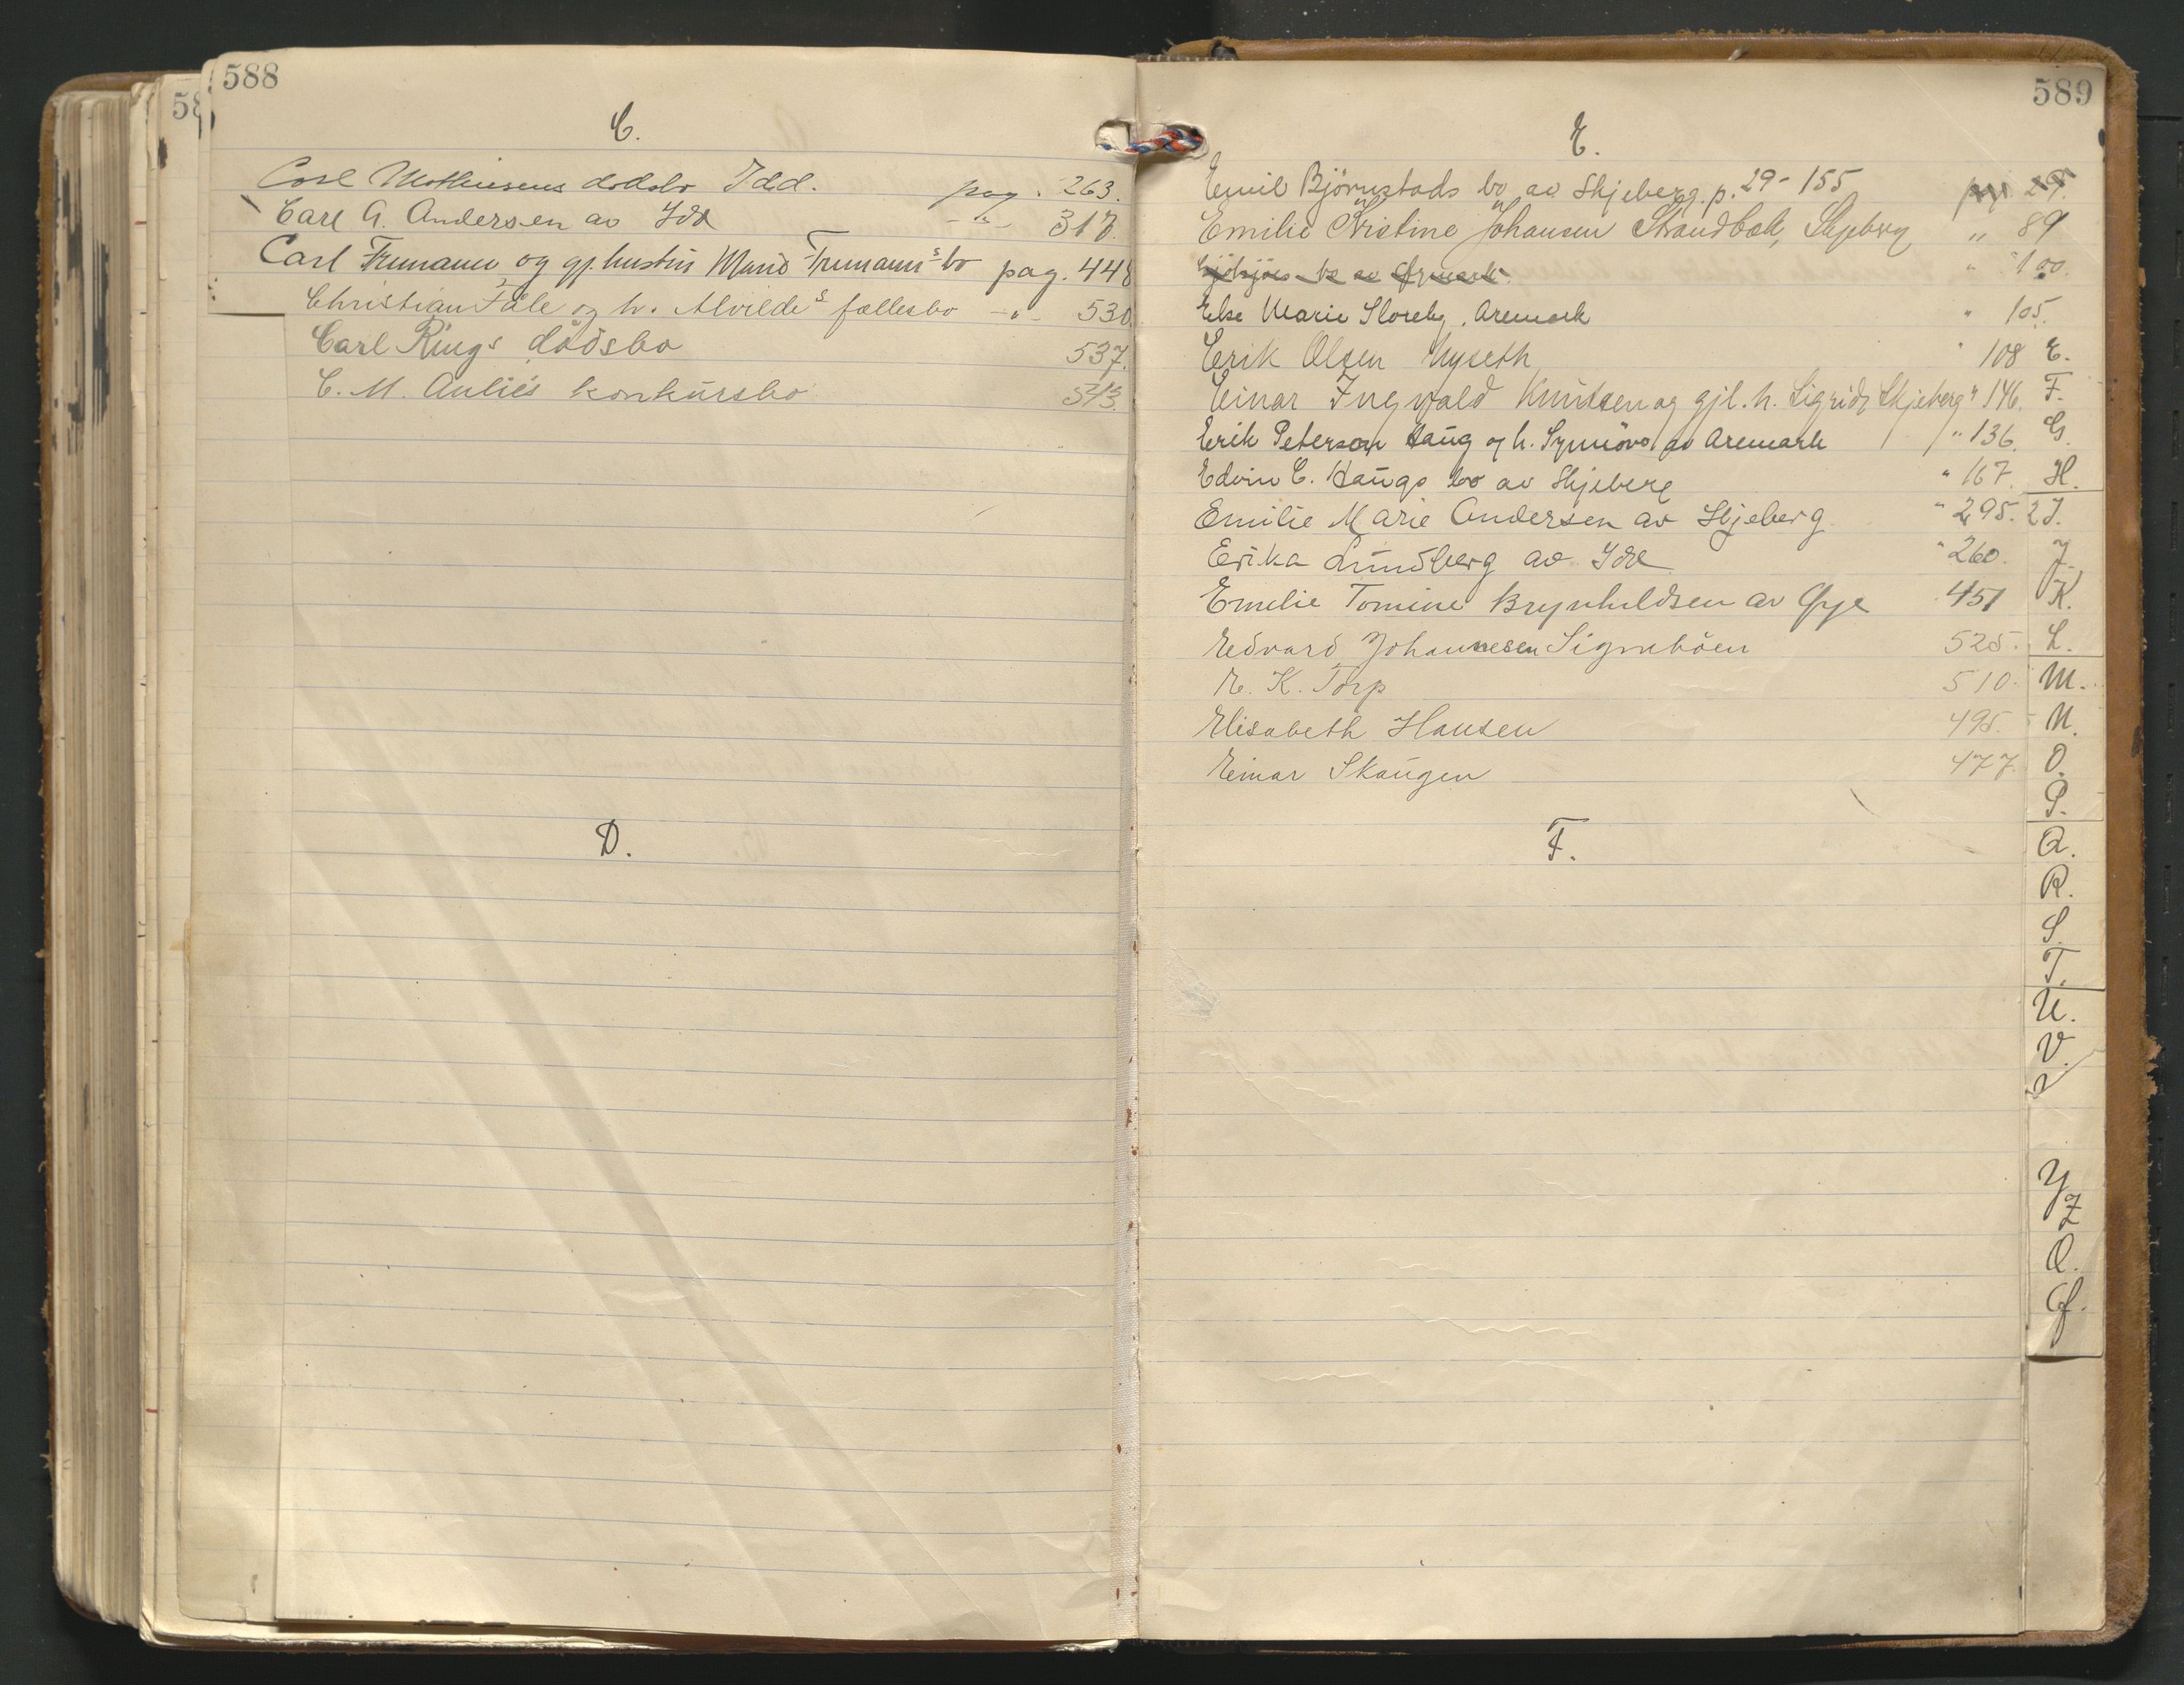 588
C.
Carl Mathiesens dødsbo Idd. pag. 263.
Carl A. Andersen av Idd -"- 317.
Carl Trumann og gj. hustru Marie Trumann's bo pag. 448
Christian Fåle og h. Alvilde's fællesbo -"- 530
Carl Rings dödsbo 537.
C. M. Aulies konkursbo 543.
D.
589
E.
Emil Björnstads bo av Skjeberg. p. 29-155 pag. 29.
Emilie Kristine Johansen Strandbak, Skjeberg " 89
bo av " 100.
Else Marie Sloreby, Aremark " 105.
Erik Olsen Nyseth " 108
Einar Ingvald Knutsen og gjl. h. Sigrid, Skjeberg " 146.
Erik Peterson Haug og h. Synnöve, av Aremark " 136.
Edvin C. Haugs bo av Skjeberg " 167.
Emilie Marie Andersen av Skjeberg " 295.
Erika Lundberg av Idd " 260.
Emelie Tomine Brynhildsen av Øye 451
Edvard Johannesen Signebøen 525.
E. K. Torp 510.
Elisabeth Hansen 495.
Einar Skaugen 477.
F.
E.
F.
G.
H.
I.
J.
K.
L.
M.
N.
O.
P.
Q.
R.
S.
T.
U.
V.
Y
Z
Ø.